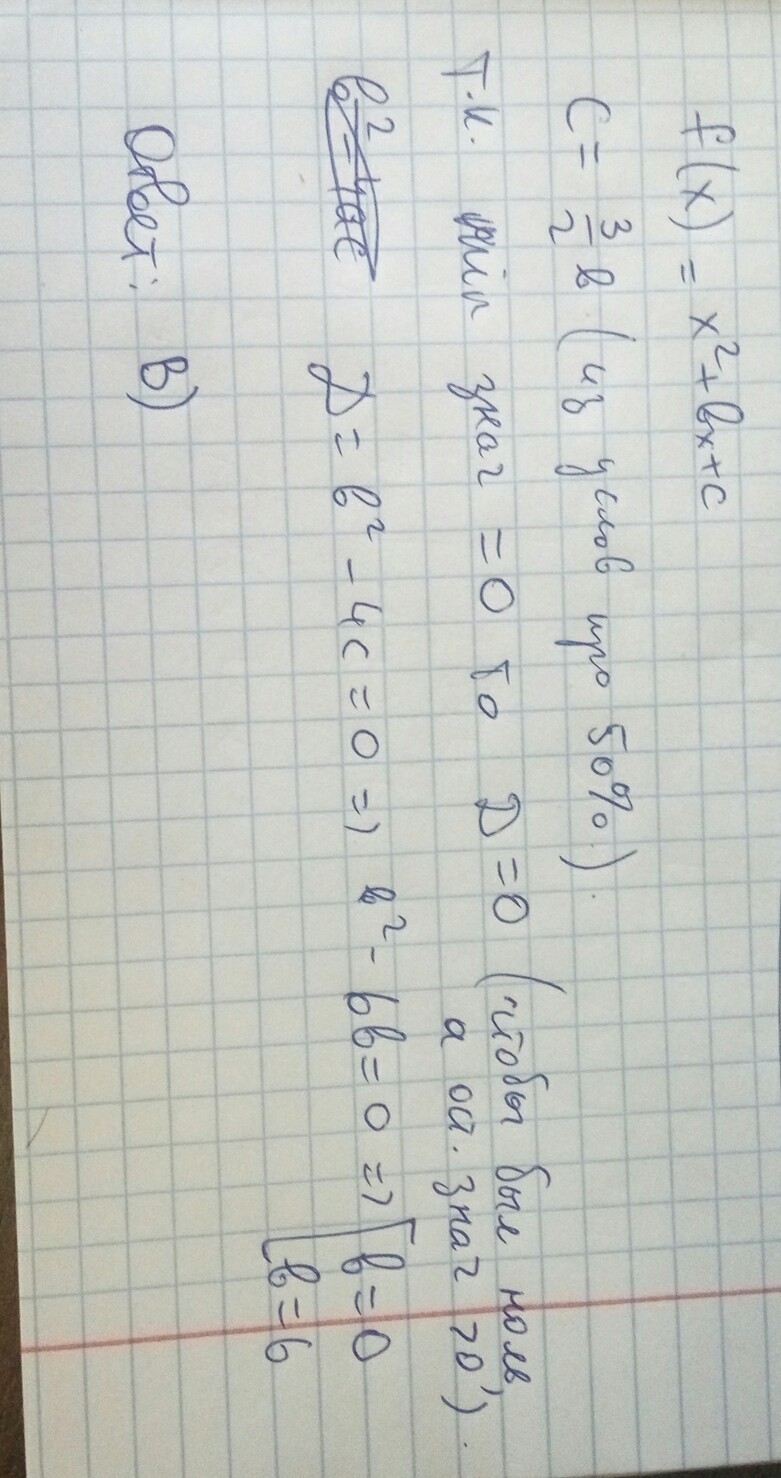 f(x) = x² + bx + c
C = 3/2 b (из услов про 50%).
т.к. min знач = 0 то D = 0 (чтобы был ноль,
а ост. знач >0).
b² = 4ac D = b² - 4c = 0 => b² - 6b = 0 => [ b = 0
b = 6
Ответ: B)